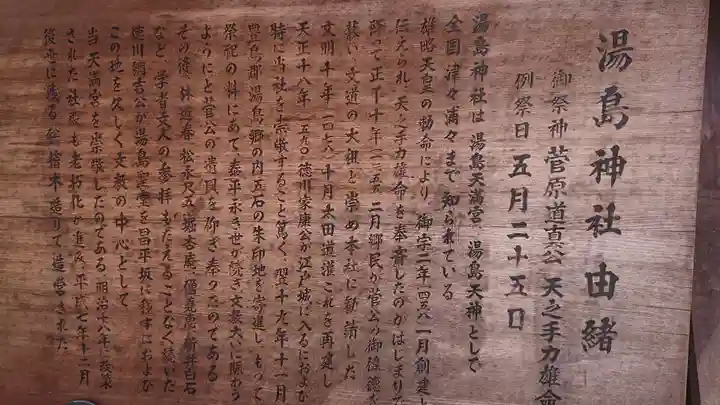 湯島神社由緒
御祭神 菅原道真公 天之手力雄命
例祭日 五月二十五日
湯島神社は 湯島天満宮 湯島天神として
全国津々浦々まで知られている
雄略天皇の勅命により 御宇二年(四五八)一月創建と
伝えられ、天之手力雄命を奉斎したのがはじまりで
降って正平十年(一三五五)二月郷民が菅公の御偉徳を
慕い 文道の大祖と崇め本社に勧請した
文明十年(一四七八)十月 太田道灌これを再建し
天正十八年(一五九〇)徳川家康公が江戸城に入るにおよび
特に当社を崇敬すること篤く 翌十九年十一月
豊島郡湯島郷の内五石の朱印地を寄進し もって
祭祀の料にあて 泰平永き世が続き 文教大いに賑わう
ようにと菅公の遺風を仰ぎ奉ったのである
その後 林道春 松永尺五 堀杏庵 僧堯恵 新井白石
など 学者文人の参拝もたえることなく続いた
徳川綱吉公が湯島聖堂を昌平坂に移すにおよび
この地を久しく文教の中心として
当天満宮を崇敬したのである 明治十八年に改築
された社殿も老朽化が進み 平成七年十二月
後世に残る総檜木造りで造営された